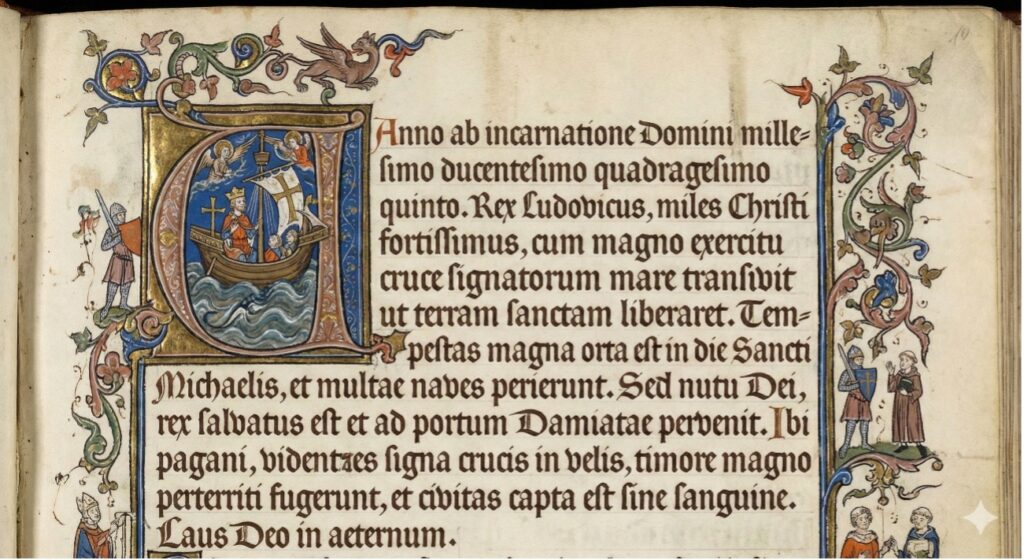 10
Anno ab incarnatione Domini mille=
simo ducentesimo quadragesimo
quinto. Rex Ludovicus, miles Christi
fortissimus, cum magno exercitu
cruce signatorum mare transivit
ut terram sanctam liberaret. Tem=
pestas magna orta est in die Sancti
Michaelis, et multae naves perierunt. Sed nutu Dei,
rex salvatus est et ad portum Damiatae pervenit. Ibi
pagani, videntaes signa crucis in velis, timore magno
perterriti fugerunt, et civitas capta est sine sanguine.
Laus Deo in aeternum.